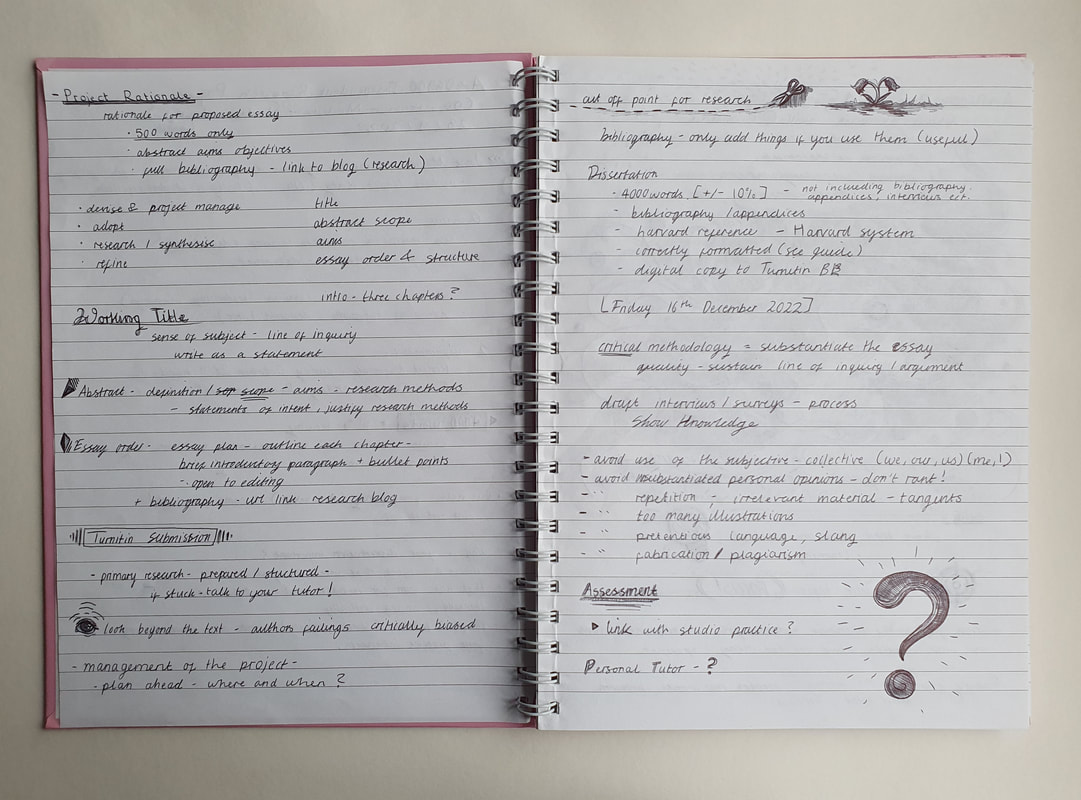 - Project Rationale -
rationale for proposed essay
· 500 words only
· abstract aims objectives
· full bibliography - link to blog (research)
· devise & project manage
· adopt
· research / synthesise
· refine
title
abstract scope
aims
essay order & structure
intro - three chapters?
Working Title
sense of subject - line of inquiry
write as a statement
Abstract - definition / sop scope - aims - research methods
- statements of intent, justify research methods
Essay order - essay plan - outline each chapter -
brief introductory paragraph + bullet points
- open to editing
+ bibliography - url link research blog
Turnitin Submission
- primary research - prepared / stuctured -
if stuck - talk to your tutor!
look beyond the text - authors failings critically biased
- management of the project -
- plan ahead - where and when?
cut off point for research
bibliography - only add things if you use them (useful)
Dissertation
· 4000 words [+/- 10%] - not including bibliography
appendices, interviews ect.
- bibliography / appendices
- harvard reference - Harvard system
- correctly formatted (see guide)
- digital copy to Turnitin BB
[Friday 16th December 2022]
critical methodology = substantiate the essay
quality - sustain line of inquiry / argument
draft interviews / surveys - process
Show Knowledge
- avoid use of the subjective - collective (we, our, us) (me, !)
- avoid unsubstantiated personal opinions - don't rant!
- " repetition - irrelevant material - tangents
- " too many illustrations
- " pretentious language, slang
- " fabrication / plagiarism
Assessment
link with studio practice?
Personal Tutor - ?
?